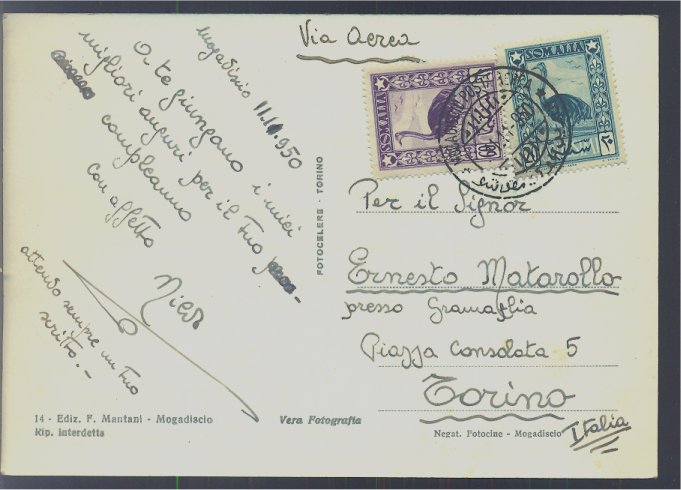 Via Aerea
Mogadiscio 11.11.950
A te giungano i miei
migliori auguri per il tuo
compleanno
con affetto
attendo sempre un tuo
scritto. -
FOTOCELERE - TORINO
SOMALIA
SOMALIA
Per il Signor
Ernesto Matarollo
presso Gramaglia
Piazza Consolata 5
Torino
Italia
14 - Ediz. F. Mantani - Mogadiscio
Rip. interdetta
Vera Fotografia
Negat. Fotocine - Mogadiscio